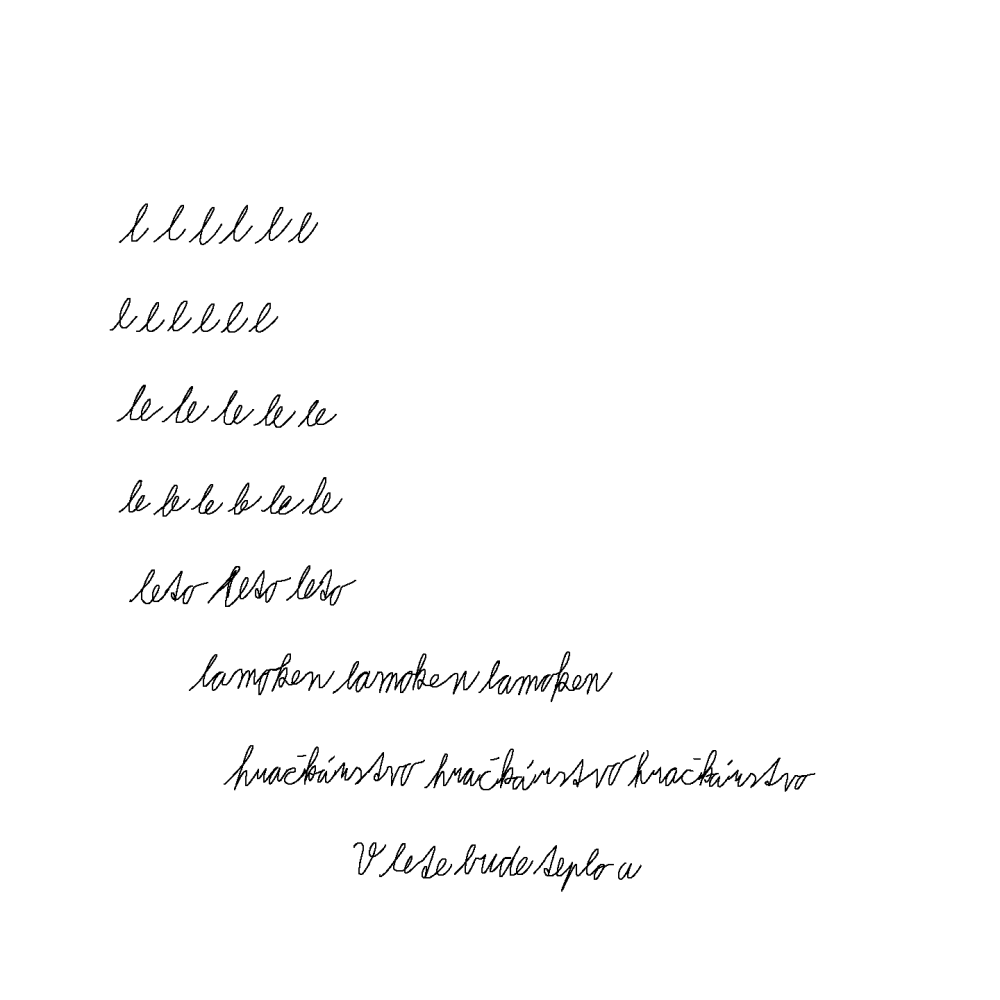 l l l l l l
l l l l l l
le le le le le
le le le le le le
leto leto leto
lamoken lamoken lamoken
hračkárstvo hračkárstvo hračkárstvo
V lete bude teplo a